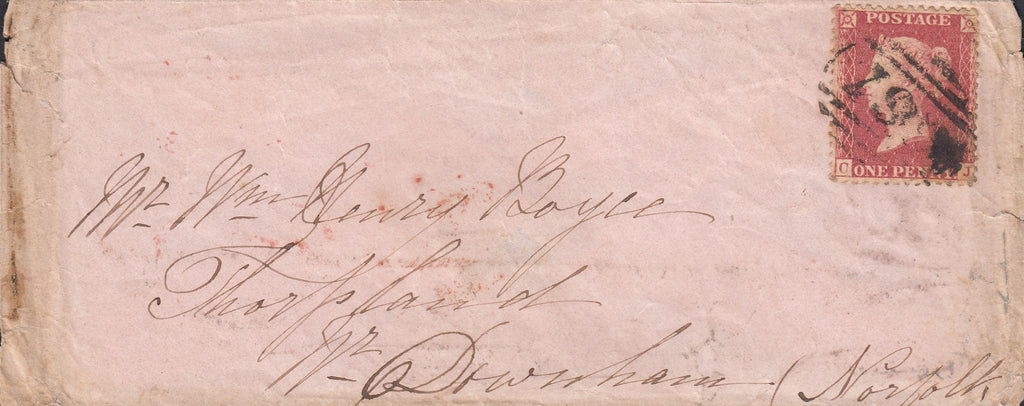 POSTAGE
C ONE PENNY J
Mr Wm Henry Boyce
Thorpland
Nr Downham (Norfolk